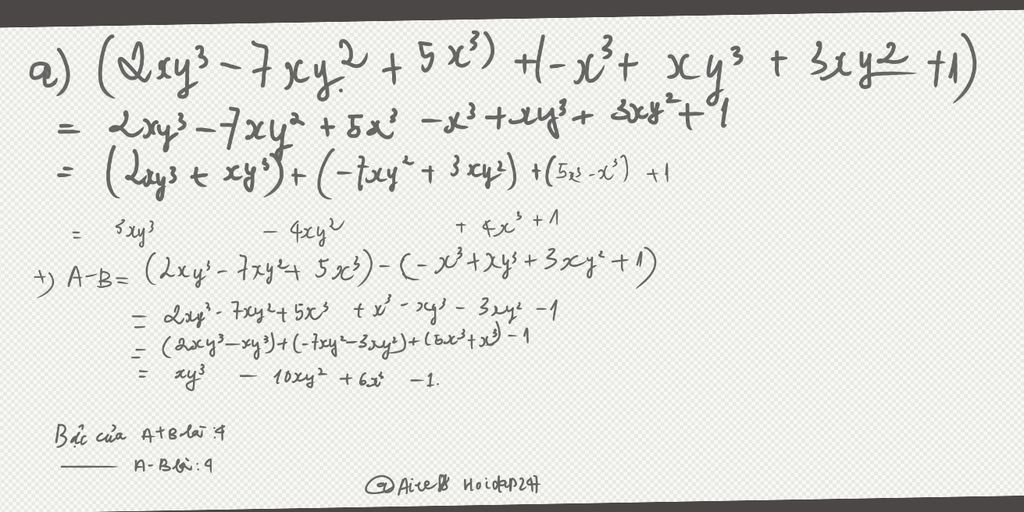 a) (2xy³ - 7xy² + 5x³) + (-x³ + xy³ + 3xy² + 1)
= 2xy³ - 7xy² + 5x³ - x³ + xy³ + 3xy² + 1
= (2xy³ + xy³) + (-7xy² + 3xy²) + (5x³ - x³) + 1
= 3xy³ - 4xy² + 4x³ + 1
+) A-B = (2xy³ - 7xy² + 5x³) - (-x³ + xy³ + 3xy² + 1)
= 2xy³ - 7xy² + 5x³ + x³ - xy³ - 3xy² - 1
= (2xy³ - xy³) + (-7xy² - 3xy²) + (5x³ + x³) - 1
= xy³ - 10xy² + 6x³ - 1.
Bậc của A+B là : 4
—— A-B là : 4
Hoidap247